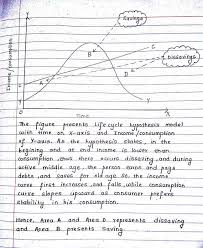 Y
Savings
B
C
Dissavings
A
D
Income / consumption
Y
X
O
Time
The figure presents life cycle hypothesis model
with time on X-axis and Income/consumption
of Y-axis. As the hypothesis states, in the
begining and at end income is lower than
consumption thus there occurs dissaving and during
active middle age, the person earns and pays
debt and saves for old age so the income
curve first increases and falls while consumption
curve slopes upward as consumer prefers
stability in his consumption.
Hence, Area A and Area D represents dissaving
and Area B presents Saving.